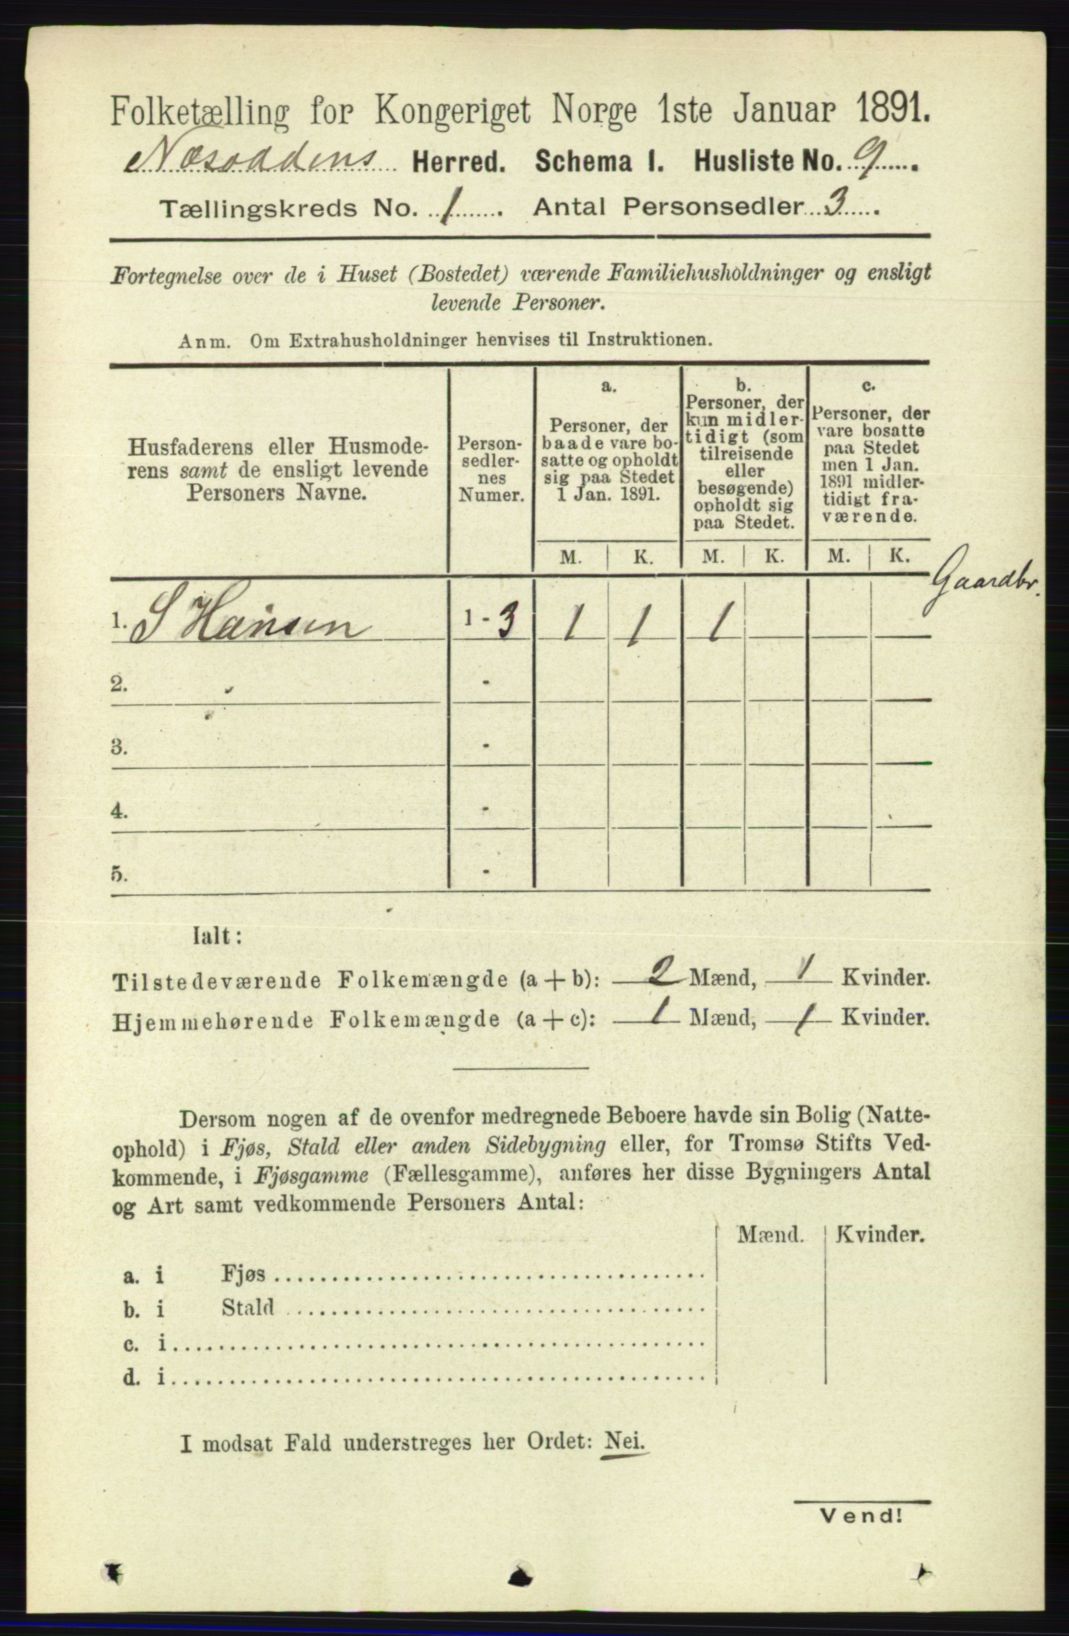 Folketælling for Kongeriget Norge 1ste Januar 1891.
Næsoddens Herred. Schema I. Husliste No. 9.
Tællingskreds No. 1. Antal Personsedler 3.
Fortegnelse over de i Huset (Bostedet) værende Familiehusholdninger og ensligt
levende Personer.
Anm. Om Extrahusholdninger henvises til Instruktionen.
Husfaderens eller Husmode-
rens samt de ensligt levende
Personers Navne.
Person-
sedler-
nes
Numer.
a.
Personer, der
baade vare bo-
satte og opholdt
sig paa Stedet
1 Jan. 1891.
b.
Personer, der
kun midler-
tidigt (som
tilreisende
eller
besøgende)
opholdt sig
paa Stedet.
c.
Personer, der
vare bosatte
paa Stedet
men 1 Jan.
1891 midler-
tidigt fra-
værende.
M. K. M. K. M. K.
Gaardbr.
1. S Hansen 1-3 1 1 1
2. -
3. -
4. -
5. -
Ialt:
Tilstedeværende Folkemængde (a + b): 2 Mænd, 1 Kvinder.
Hjemmehørende Folkemængde (a + c): 1 Mænd, 1 Kvinder.
Dersom nogen af de ovenfor medregnede Beboere havde sin Bolig (Natte-
ophold) i Fjøs, Stald eller anden Sidebygning eller, for Tromsø Stifts Ved-
kommende, i Fjøsgamme (Fællesgamme), anføres her disse Bygningers Antal
og Art samt vedkommende Personers Antal:
Mænd. Kvinder.
a. i Fjøs
b. i Stald
c. i
d. i
I modsat Fald understreges her Ordet: Nei.
Vend!